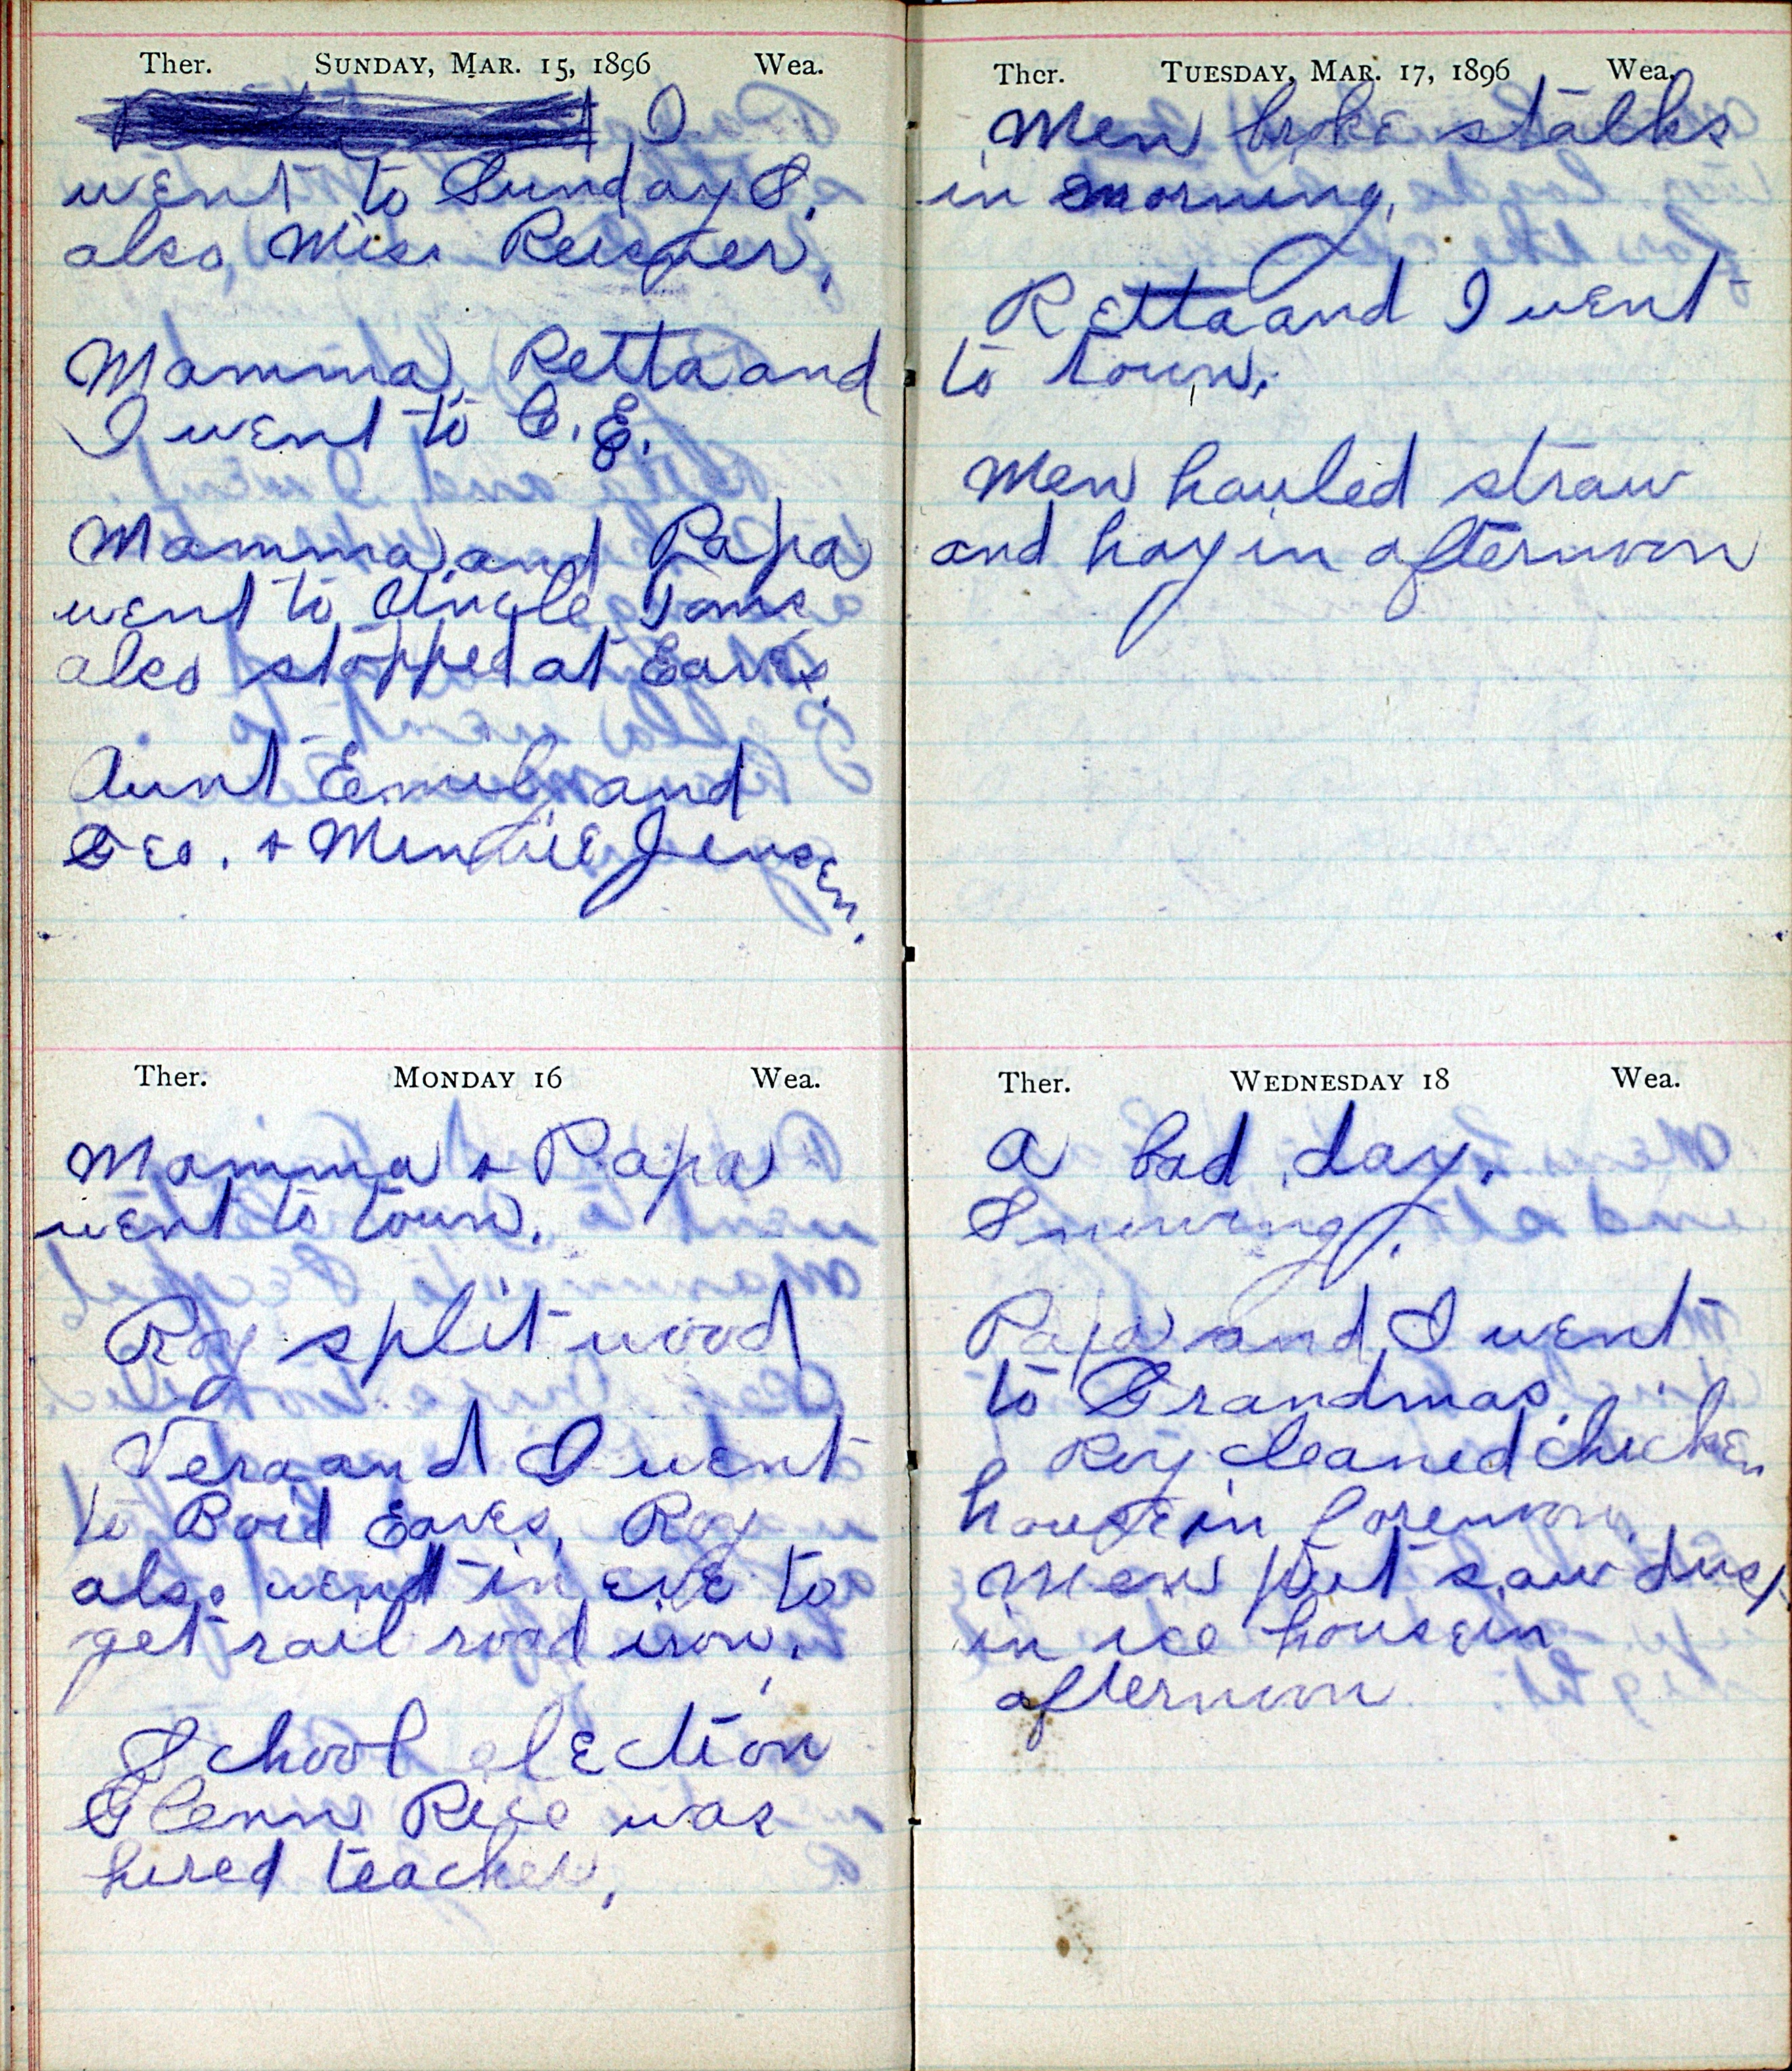 Ther. SUNDAY, MAR. 15, 1896 Wea.
I
went to Sunday S.
also, Miss Reisner.
Mamma, Retta and
I went to C. E.
Mamma and Papa
went to Uncle Toms
also stopped at Eaves.
Aunt Emily and
Geo. + Minnie Jensen.
Ther. MONDAY 16 Wea.
Mamma + Papa
went to town.
Roy split wood
Vera and I went
to Boid Eaves, Roy
also went in eve to
get rail road iron.
School election
Glenn Rice was
hired teacher.
Ther. TUESDAY, MAR. 17, 1896 Wea.
Men broke stalks
in morning.
Retta and I went
to town.
Men hauled straw
and hay in afternoon
Ther. WEDNESDAY 18 Wea.
A bad day.
Snowing.
Papa and I went
to Grandmas.
Roy cleaned chicken
house in forenoon.
Men put saw dust
in ice house in
afternoon